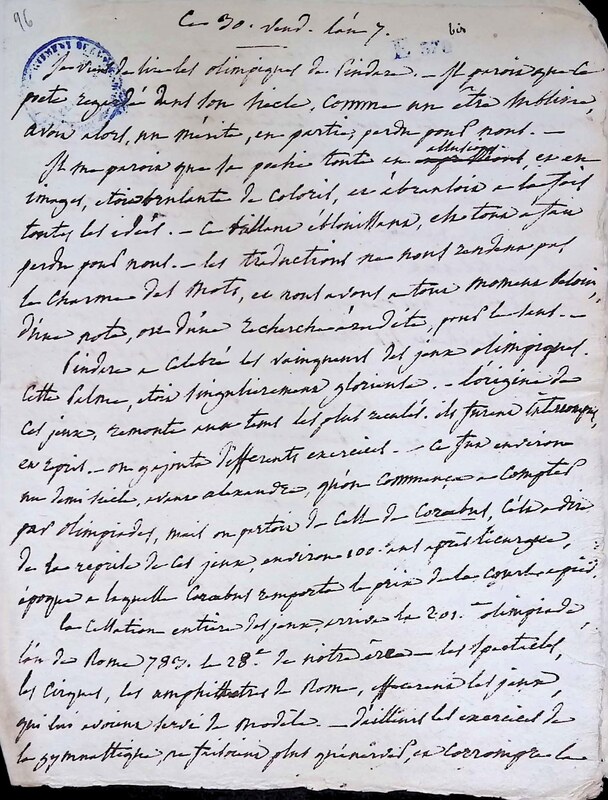 96
Ce 30. vend. l'an 7.
bis
E 378
Je viens de lire les olimpiques de Pindare. – Il paroit que ce
poete regardé dans son siecle, comme un être sublime,
avoit alors, un mérite, en partie, perdu pour nous. –
Il me paroit que sa poesie toute en allusions, et en
images, etoit brulante de coloris, et ébranloit a la fois
toutes les idées. – Ce éblouissant, est tout a fait
perdu pour nous. – les traductions ne nous rendent pas
le charme des mots, et nous avons a tout moment besoin,
d'une note, ou d'une recherche érudite, pour le sens. –
Pindare a célébré les vainqueurs des jeux olimpiques.
Cette palme, etoit singulierement glorieuse. – l'origine de
ces jeux, remonte aux tems les plus reculés. ils furent interrompus,
et repris. – on y ajouta différents exercices. – Ce fut environ
un demi siecle, avant alexandre, qu'on commença a compter
par olimpiades, mais on partoit de celle de Corœbus, c'est a dire
de la reprise de ces jeux, environ 100. ans après licurgue,
époque a laquelle Corœbus remporta le prix de la course a pied.
la cessation entiere des jeux, arriva la 201.e olimpiade,
l'an de Rome 783. le 28.e de notre ère – les spectacles,
les cirques, les amphitheatres de Rome, effacerent les jeux,
qui leur avoient servi de modèle. – d'ailleurs les exercices de
la gymnastique, ne faisoient plus qu'énerver, et corrompre la